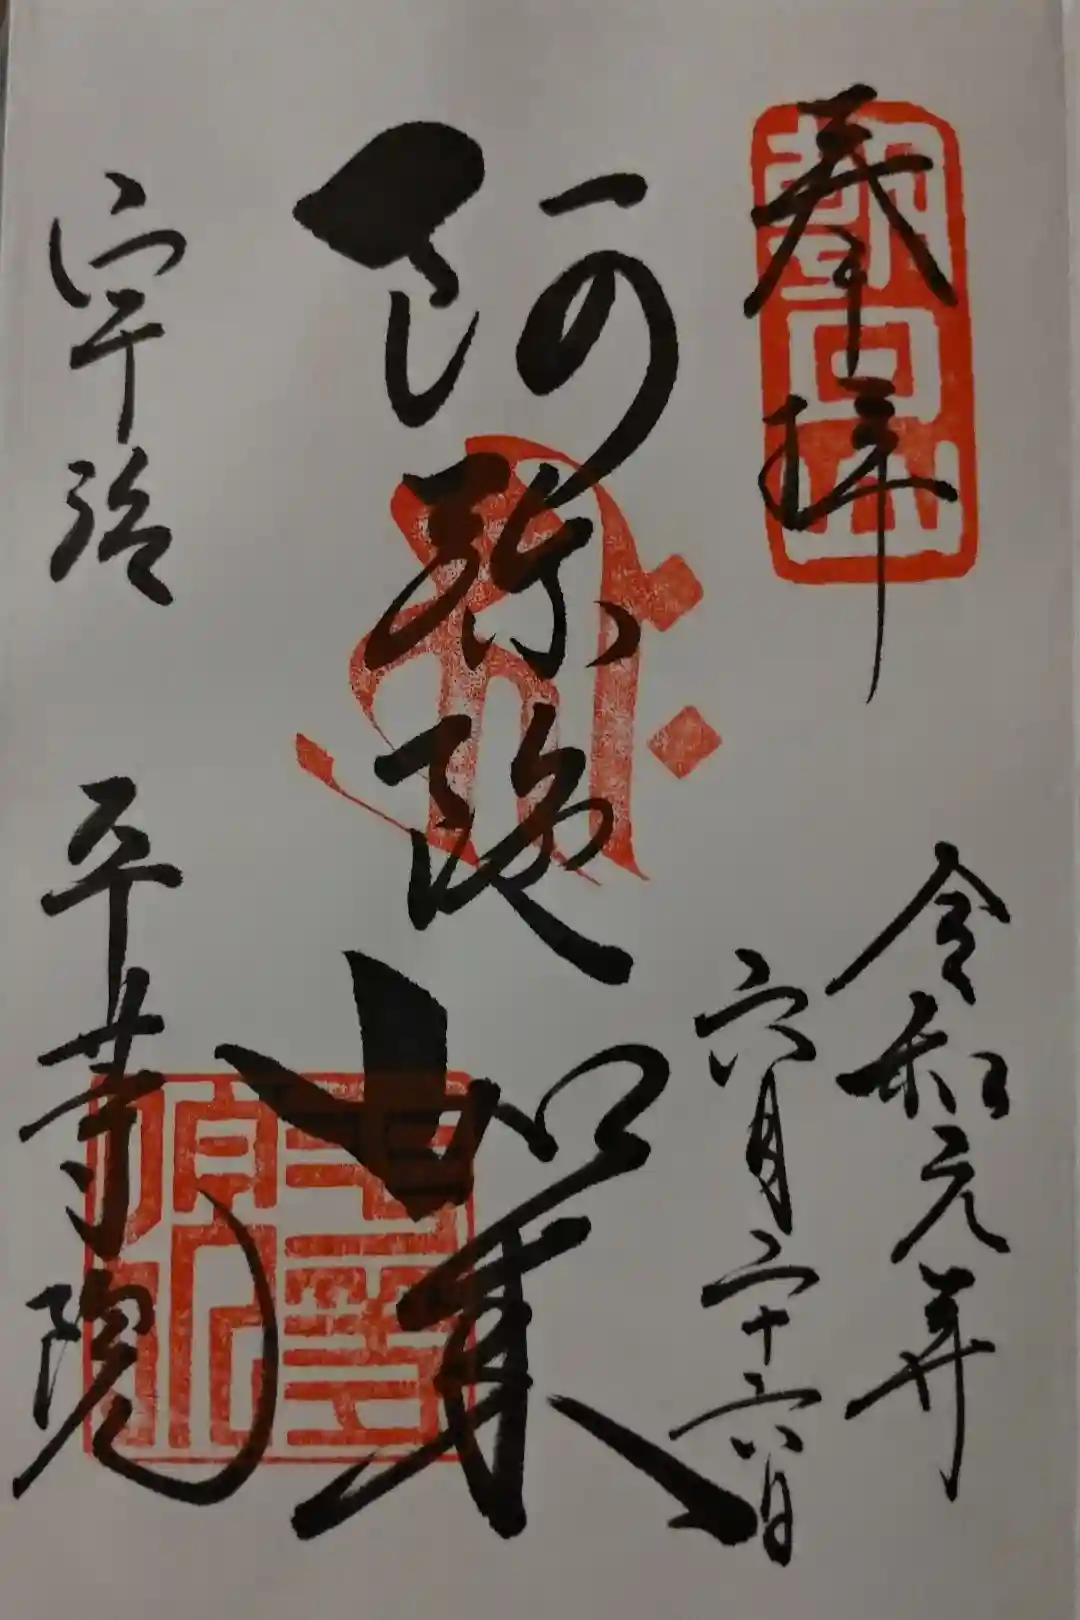 奉拝
朝日山
令和元年
六月二十六日
阿弥陀如来
宇治 平等院